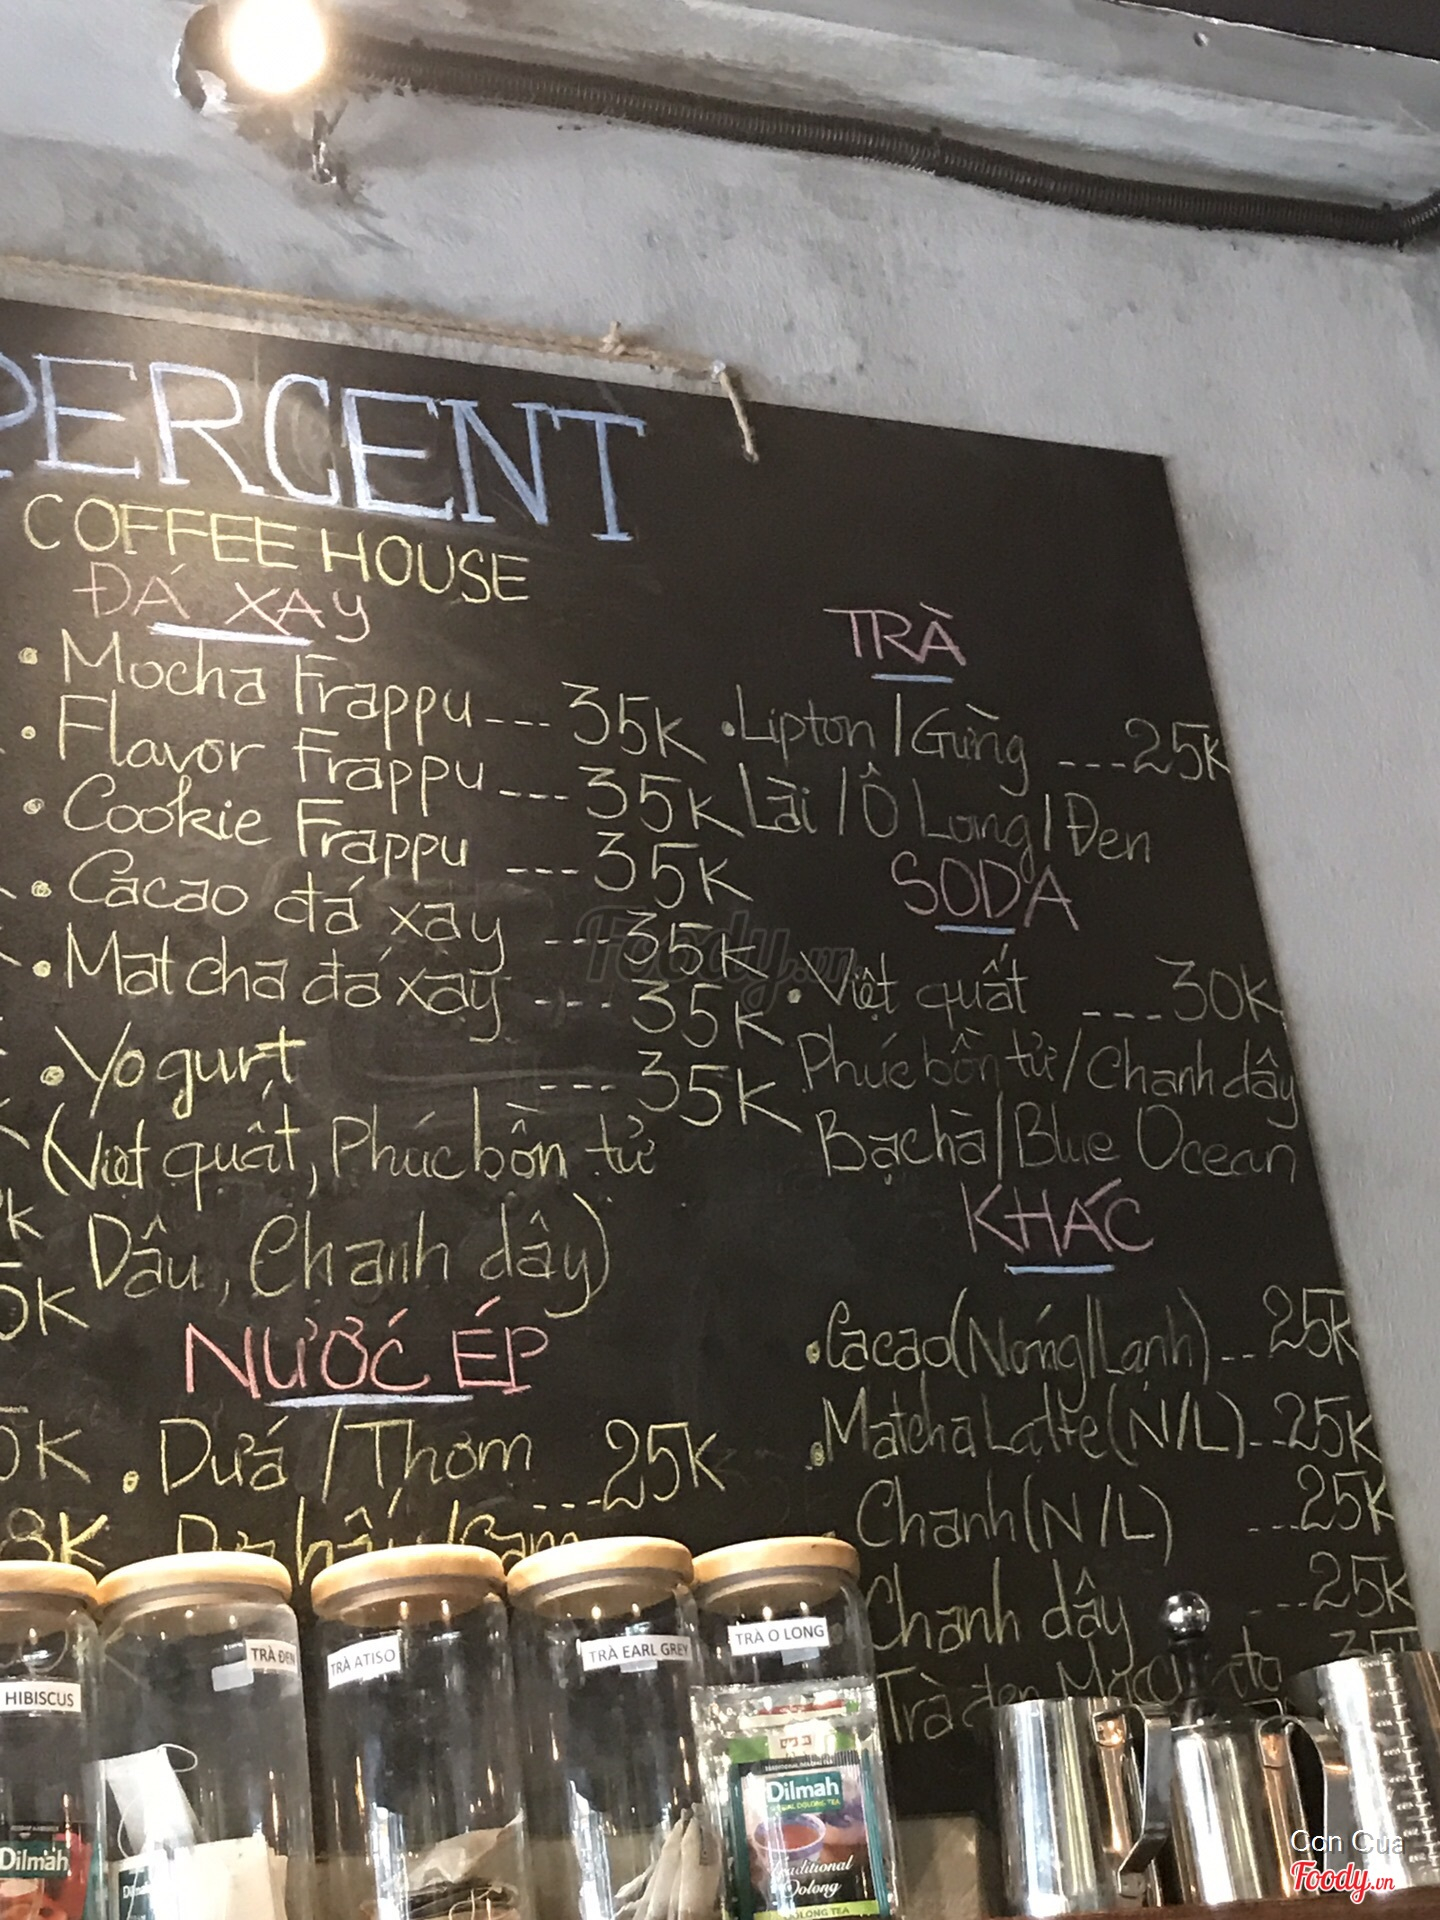 PERCENT
COFFEE HOUSE
ĐÁ XAY
• Mocha Frappu --- 35K
• Flavor Frappu --- 35K
• Cookie Frappu --- 35K
• Cacao đá xay --- 35K
• Matcha đá xay --- 35K
• Yogurt --- 35K
(Việt quất, Phúc bồn tử
Dâu, Chanh dây)
NƯỚC ÉP
• Dưá / Thơm ---25K
Dưa hấu /Cam
TRÀ
• Lipton / Gừng ---25K
Lài / Ô Long / Đen
SODA
• Việt quất ---30K
Phúc bồn tử / Chanh dây
Bạc hà / Blue Ocean
KHÁC
• Cacao (Nóng/Lạnh) -- 25K
• Matcha Latte (N/L) -- 25K
Chanh (N/L) --- 25K
Chanh dây --- 25K
Trà đen
K
5K
5K
8K
HIBISCUS
TRÀ ĐEN
TRÀ ATISO
TRÀ EARL GREY
TRÀ O LONG
Dilmah
Dilmah
Traditional
Oolong
OOLONG TEA
Foody.vn
Cơn Cua
Foody.vn